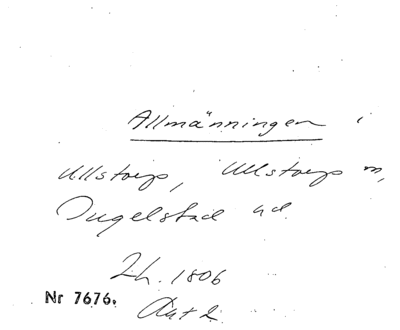 Allmänningen i
Ullstorp, Ullstorps sn,
Ingelstad hd.
Lh. 1806
Nr 7676.
Akt 2